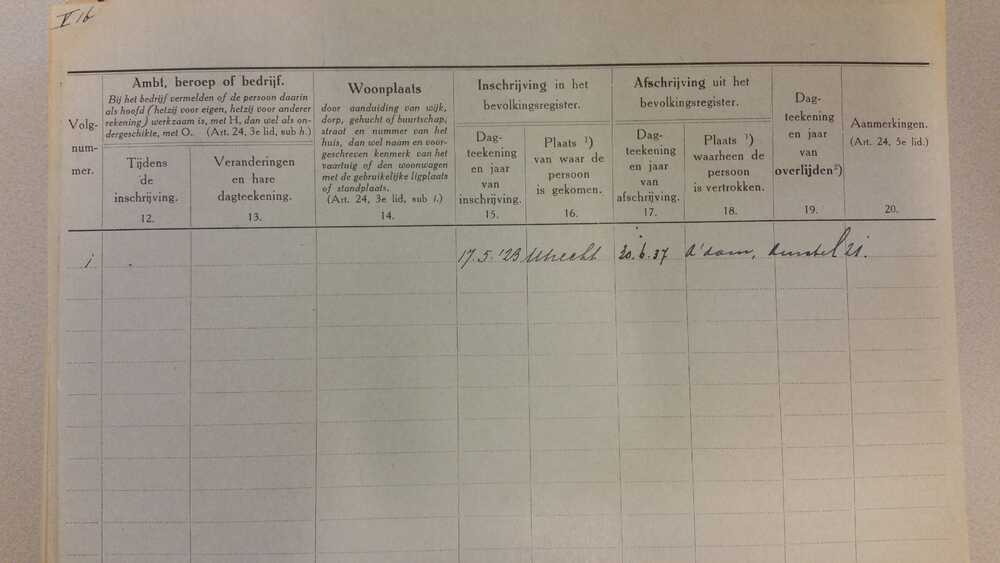 V 16
Volg-
num-
mer.
Ambt, beroep of bedrijf.
Bij het bedrijf vermelden of de persoon daarin
als hoofd (hetzij voor eigen, hetzij voor anderer
rekening) werkzaam is, met H, dan wel als on-
dergeschikte, met O. (Art. 24, 3e lid, sub h.)
Tijdens
de
inschrijving.
12.
Veranderingen
en hare
dagteekening.
13.
Woonplaats
door aanduiding van wijk,
dorp, gehucht of buurtschap,
straat en nummer van het
huis, dan wel naam en voor-
geschreven kenmerk van het
vaartuig of den woonwagen
met de gebruikelijke ligplaats
of standplaats.
(Art. 24, 3e lid, sub i.)
14.
Inschrijving in het
bevolkingsregister.
Dag-
teekening
en jaar
van
inschrijving.
15.
Plaats ¹)
van waar de
persoon
is gekomen.
16.
Afschrijving uit het
bevolkingsregister.
Dag-
teekening
en jaar
van
afschrijving.
17.
Plaats ¹)
waarheen de
persoon
is vertrokken.
18.
Dag-
teekening
en jaar
van
overlijden²)
19.
Aanmerkingen.
(Art. 24, 5e lid.)
20.
1 17.5.'23 Utrecht 30.6.37 A'dam, Amstel 21.